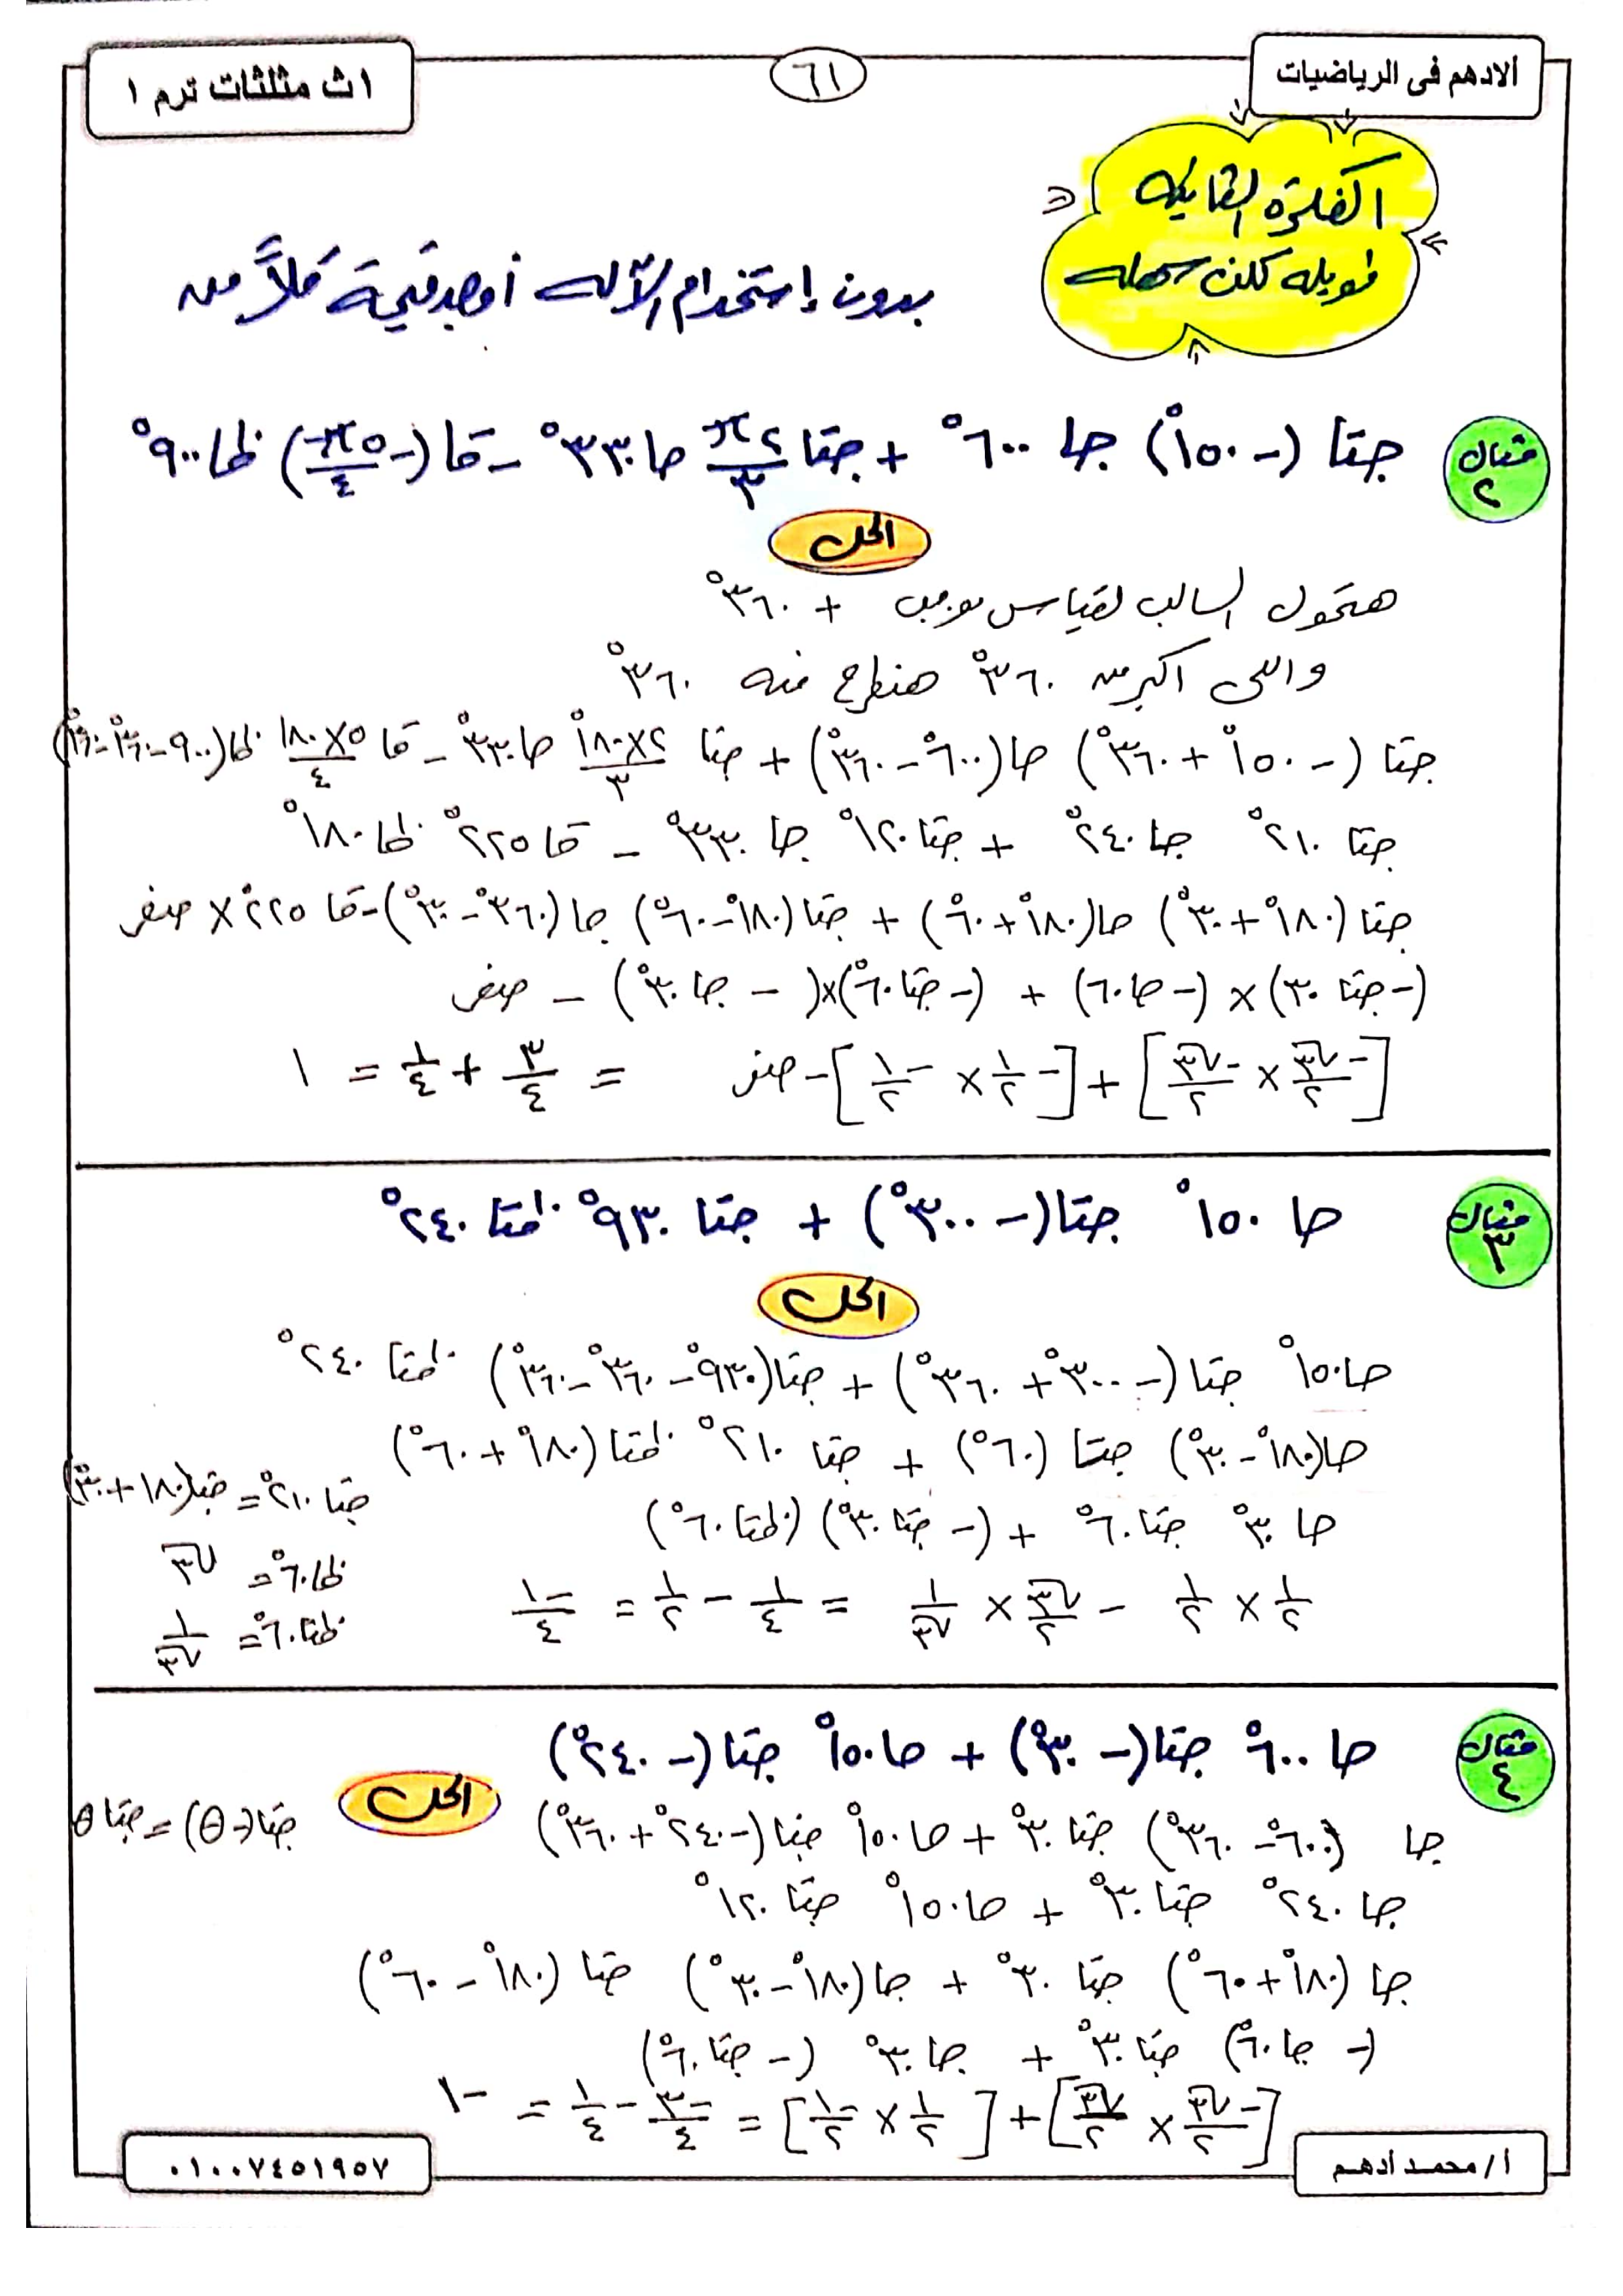 الادهم فى الرياضيات
٦١
١ث مثلثات ترم ١
الفكرة التانية
طويله لكن سهله
بدون إستخدام الآله أوجد قيمة كلاً من
مثال ٢
جتا (-١٥٠°) جا ٦٠٠° + جتا ٢π/٣ حا ٣٣٠° - قا (-٥π/٤) ظا ٩٠٠°
الحل
هنحول السالب لقياس موجب + ٣٦٠°
واللى اكبر من ٣٦٠° هنطرح منه ٣٦٠°
جتا (-١٥٠° + ٣٦٠°) حا (٦٠٠° - ٣٦٠°) + جتا ٢×١٨٠°/٣ حا ٣٣٠° - قا ٥×١٨٠/٤ ظا (٩٠٠ - ٣٦٠° - ٣٦٠°)
جتا ٢١٠° جا ٢٤٠° + جتا ١٢٠° جا ٣٣٠° - قا ٢٢٥° ظا ١٨٠°
جتا (١٨٠° + ٣٠°) حا (١٨٠° + ٦٠°) + جتا (١٨٠° - ٦٠°) جا (٣٦٠° - ٣٠°) - قا ٢٢٥° × صفر
(- جتا ٣٠) × (- حا ٦٠) + (- جتا ٦٠°) × (- جا ٣٠°) - صفر
[-√٣/٢ × -√٣/٢] + [-١/٢ × -١/٢] - صفر = ٣/٤ + ١/٤ = ١
مثال ٣
حا ١٥٠° جتا (-٣٠٠°) + جتا ٩٣٠° ظتا ٢٤٠°
الحل
حا ١٥٠° جتا (-٣٠٠° + ٣٦٠°) + جتا (٩٣٠° - ٣٦٠° - ٣٦٠°) ظتا ٢٤٠°
حا (١٨٠° - ٣٠°) جتا (٦٠°) + جتا ٢١٠° ظتا (١٨٠° + ٦٠°)
جتا ٢١٠° = جتا (١٨٠ + ٣٠°)
حا ٣٠° جتا ٦٠° + (- جتا ٣٠°) (ظتا ٦٠°)
ظا ٦٠° = √٣
١/٢ × ١/٢ - √٣/٢ × ١/√٣ = ١/٤ - ١/٢ = -١/٤
ظتا ٦٠° = ١/√٣
مثال ٤
حا ٦٠٠° جتا (-٣٠°) + حا ١٥٠° جتا (-٢٤٠°)
الحل
جا (٦٠٠° - ٣٦٠°) جتا ٣٠° + حا ١٥٠° جتا (-٢٤٠ + ٣٦٠°)
جتا (-θ) = جتا θ
جا ٢٤٠° جتا ٣٠° + حا ١٥٠° جتا ١٢٠°
جا (١٨٠° + ٦٠°) جتا ٣٠° + جا (١٨٠° - ٣٠°) جتا (١٨٠° - ٦٠°)
(- جا ٦٠°) جتا ٣٠° + جا ٣٠° (- جتا ٦٠°)
[-√٣/٢ × √٣/٢] + [١/٢ × -١/٢] = -٣/٤ - ١/٤ = -١
أ/ محمد ادهم
٠١٠٠٧٤٥١٩٥٧